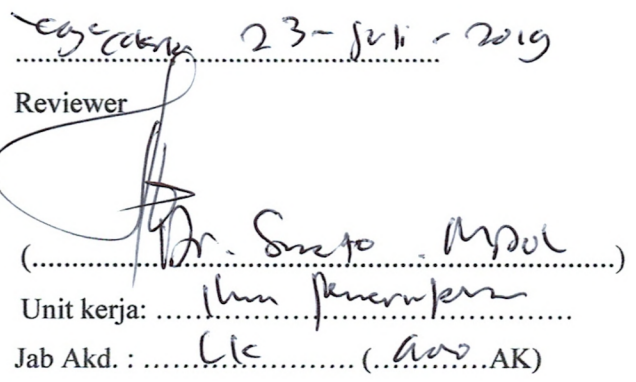 Yogyakarta 23 - Juli - 2019
Reviewer
(Dr. Sunarto. MPol)
Unit kerja: Ilmu Pemerintahan
Jab Akd. : Lk (AK)